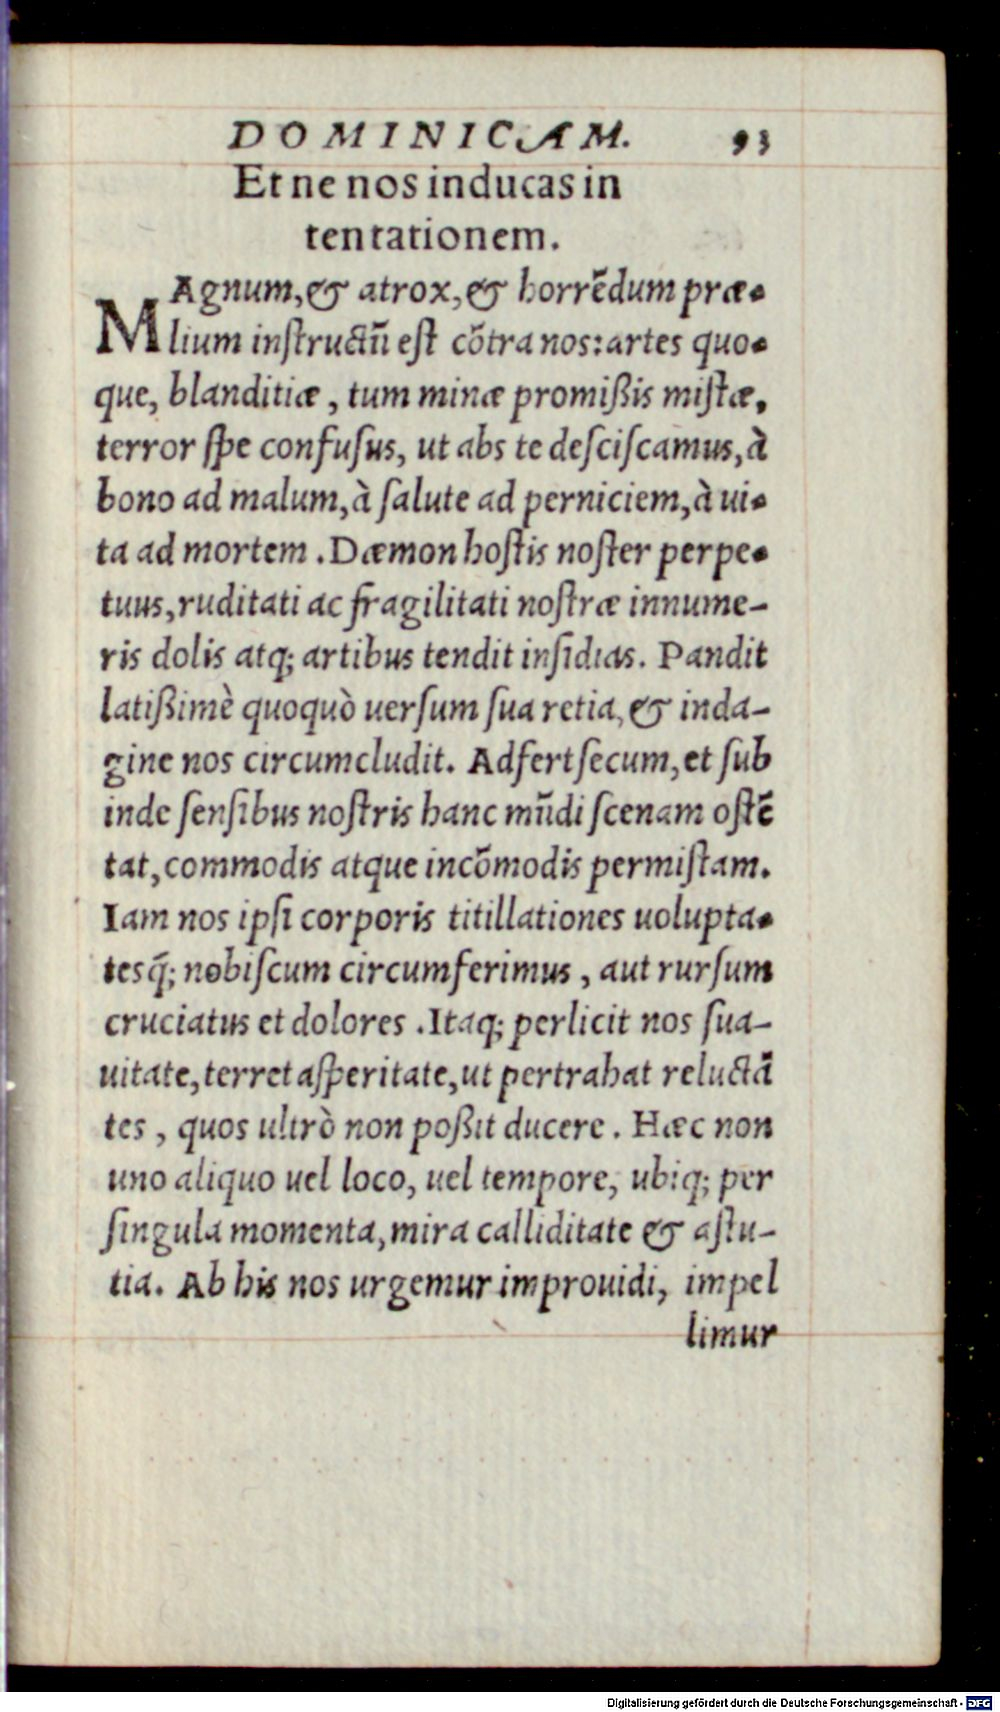 DOMINICAM. 93
Et ne nos inducas in
tentationem.
MAgnum, & atrox, & horrēdum præ-
lium inſtructū eſt cōtra nos: artes quo-
que, blanditiæ, tum minæ promißis miſtæ,
terror ſpe confuſus, ut abs te deſciſcamus, à
bono ad malum, à ſalute ad perniciem, à ui-
ta ad mortem. Dæmon hoſtis noſter perpe-
tuus, ruditati ac fragilitati noſtræ innume-
ris dolis atq; artibus tendit inſidias. Pandit
latißimè quoquò uerſum ſua retia, & inda-
gine nos circumcludit. Adfert ſecum, et ſub
inde ſenſibus noſtris hanc mūdi ſcenam oſtē
tat, commodis atque incōmodis permiſtam.
Iam nos ipſi corporis titillationes uolupta-
tesq̃; nobiſcum circumferimus, aut rurſum
cruciatus et dolores. Itaq; perlicit nos ſua-
uitate, terret aſperitate, ut pertrahat reluctā
tes, quos ultrò non poßit ducere. Hæc non
uno aliquo uel loco, uel tempore, ubiq; per
ſingula momenta, mira calliditate & aſtu-
tia. Ab his nos urgemur improuidi, impel
limur
Digitalisierung gefördert durch die Deutsche Forschungsgemeinschaft - DFG